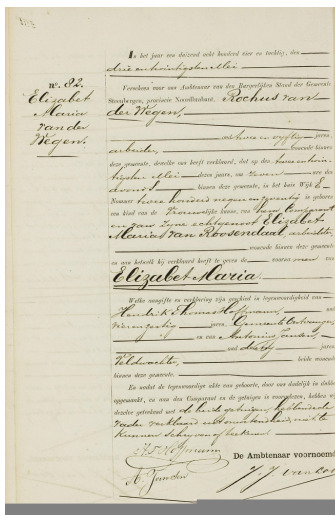 In het jaar een duizend acht honderd vier en tachtig, den
drie en twintigsten Mei
nº. 82.
Elizabet
Maria
van der
Wegen.
Verscheen voor ons Ambtenaar van den Burgerlijken Stand der Gemeente
Steenbergen, provincie Noordbrabant, Rochus van
der Wegen,
oud twee en vijftig jaren,
arbeider, wonende binnen
deze gemeente, dewelke ons heeft verklaard, dat op den twee en twin-
tigsten Mei dezes jaars, om zeven ure des
avonds binnen deze gemeente, in het huis Wijk E
Nummer twee honderd negen en zeventig is geboren
een kind van de Vrouwelijke kunne, van hem Comparant
en van zijne echtgenoot Elizabet
Maria van Roosendaal, arbeidster,
wonende binnen deze gemeente
en aan hetwelk hij verklaard heeft te geven de voornamen van
Elizabet Maria.
Welke aangifte en verklaring zijn geschied in tegenwoordigheid van
Hendrik Thomas Hofmann, oud
vier en veertig jaren, Gemeente Ontvanger,
en van Antonius Jansen,
oud jaren
Veldwachter, beide wonende
binnen deze gemeente.
En is van de tegenwoordige akte van geboorte, door ons dadelijk in dubbel
opgemaakt, en aan den Comparant en de getuigen is voorgelezen, hebben
dezelve geteekend met de beide getuigen, hebbende
Vader verklaard uit onwetendheid, niet te
kunnen schrijven of teekenen.
H. T. Hofmann
De Ambtenaar voornoemd
A. Jansen
J. J. van